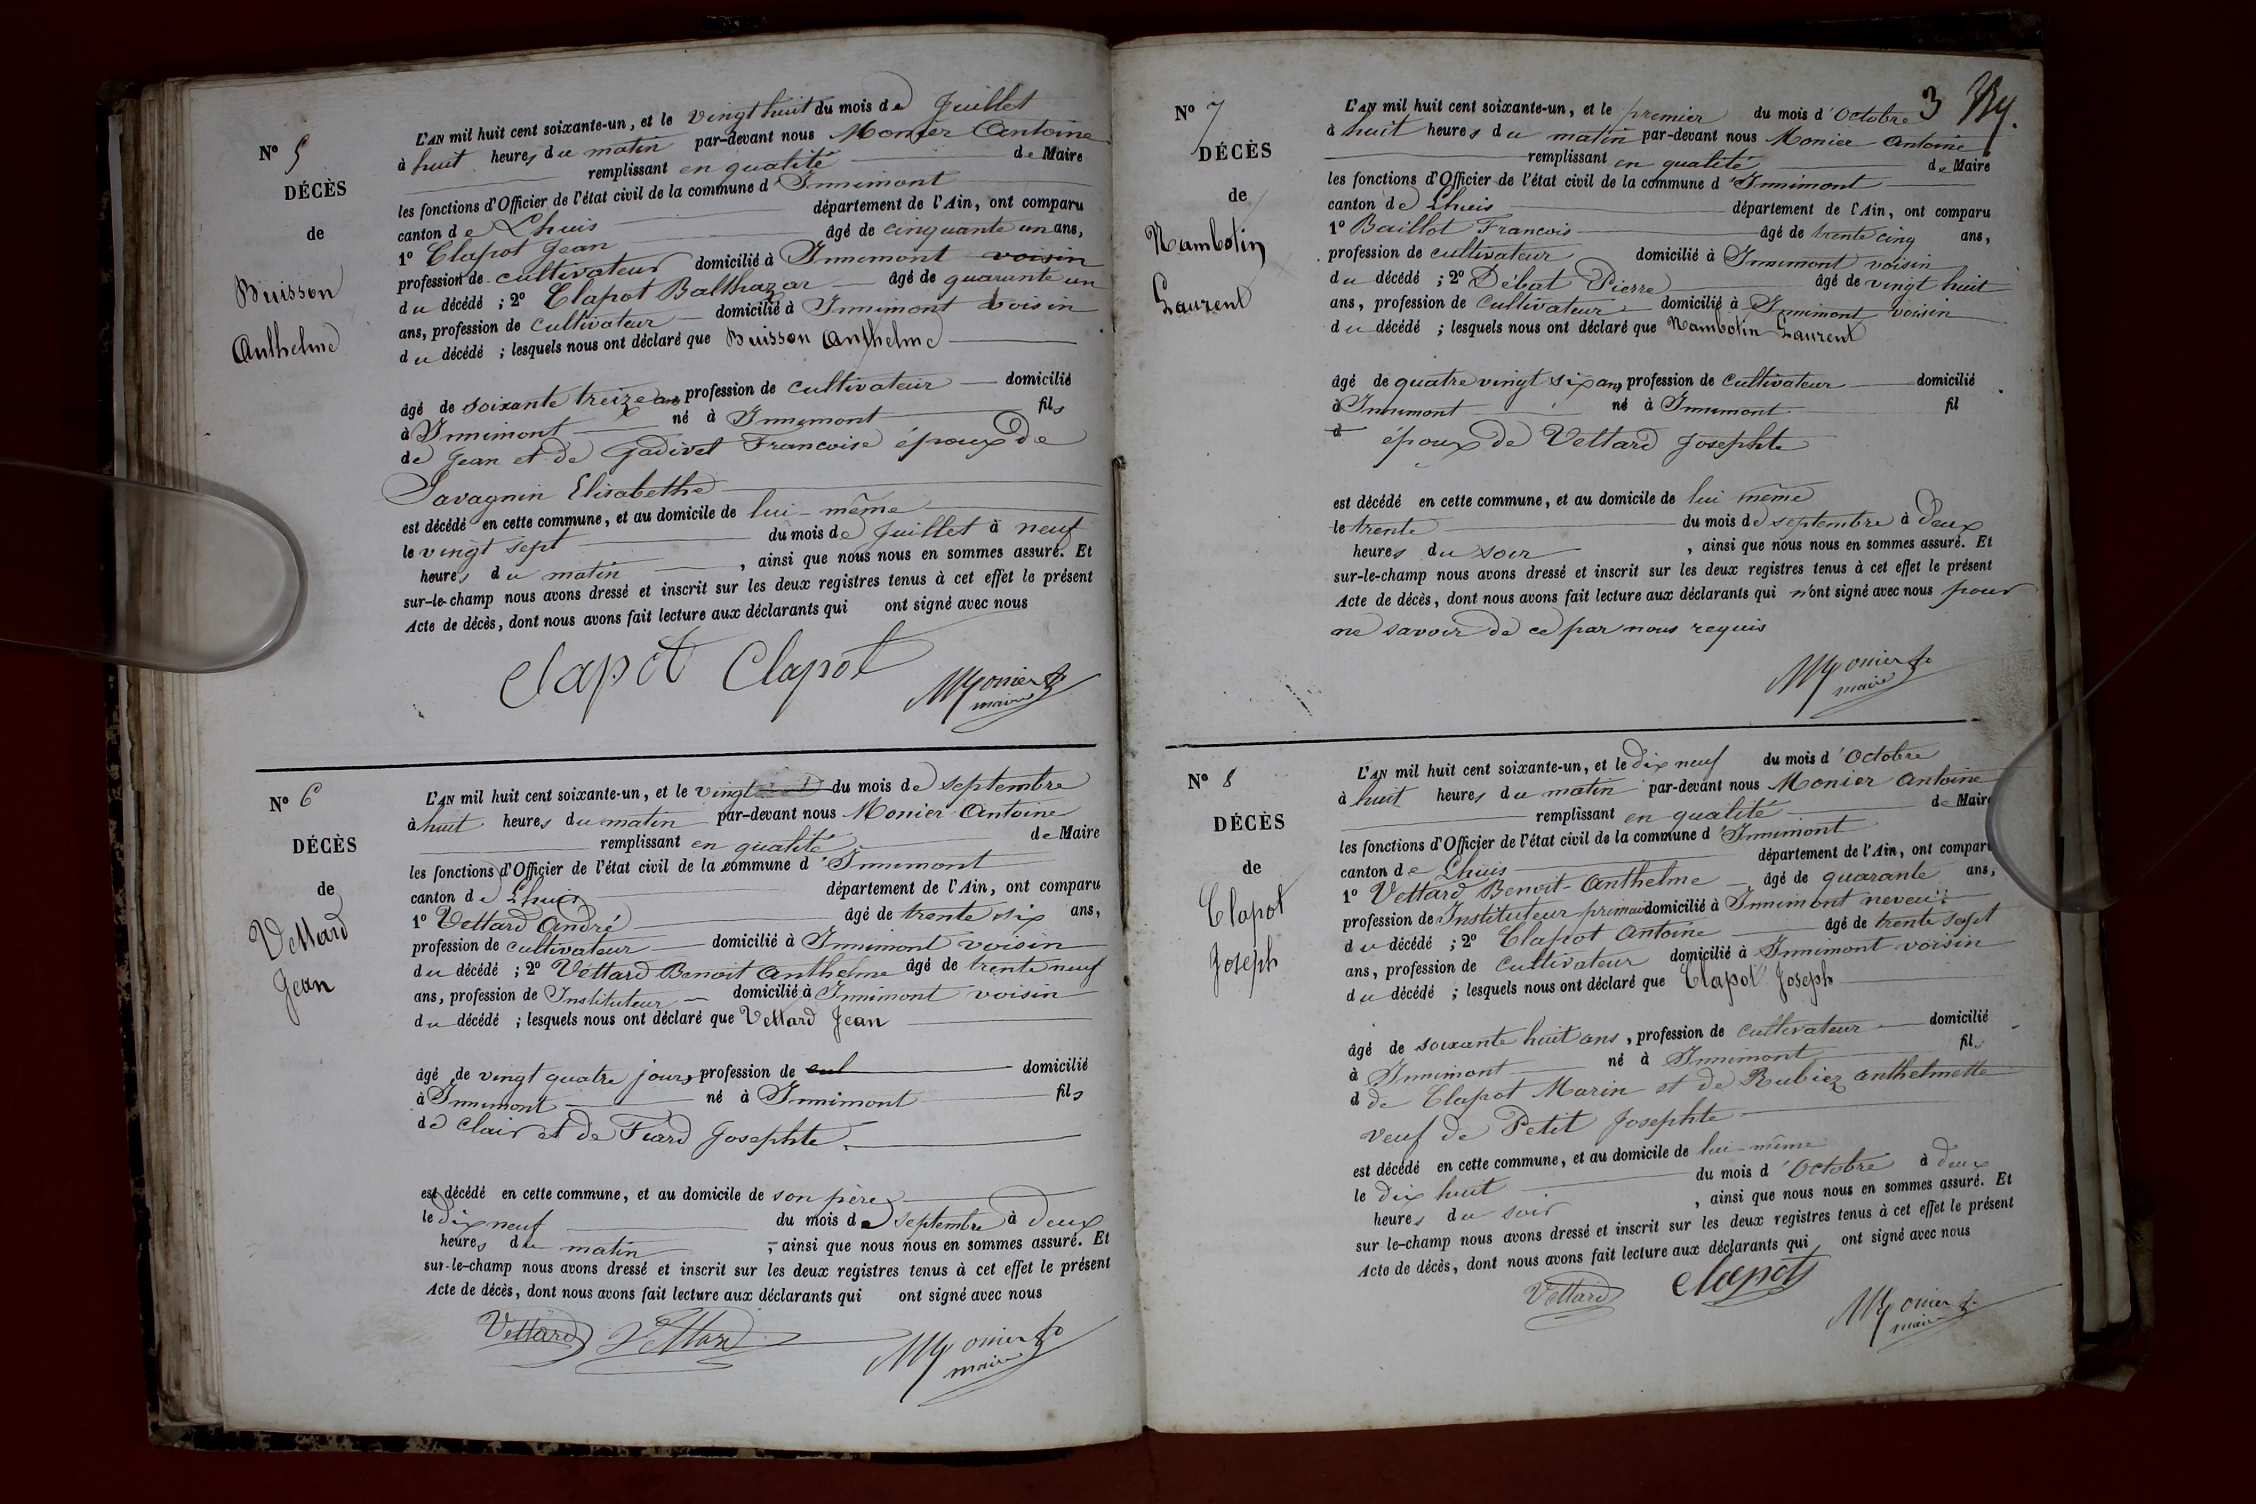 N° 5
DÉCÈS
de
Buisson
Anthelme
L'AN mil huit cent soixante-un, et le vingt huit du mois de Juillet
à huit heures du matin par-devant nous Monier Antoine
remplissant en qualité de Maire
les fonctions d'Officier de l'état civil de la commune d'Innimont
canton de Lhuis département de l'Ain, ont comparu
1° Clapot Jean âgé de cinquante un ans,
profession de cultivateur domicilié à Innimont voisin
du décédé ; 2° Clapot Balthazar âgé de quarante un
ans, profession de cultivateur domicilié à Innimont voisin
du décédé ; lesquels nous ont déclaré que Buisson Anthelme
âgé de soixante treize ans profession de cultivateur domicilié
à Innimont né à Innimont fils
de Jean et de Gadivet Francoise époux de
Savagnin Elisabethe
est décédé en cette commune, et au domicile de lui-même
le vingt sept du mois de Juillet à neuf
heures du matin, ainsi que nous nous en sommes assuré. Et
sur-le-champ nous avons dressé et inscrit sur les deux registres tenus à cet effet le présent
Acte de décès, dont nous avons fait lecture aux déclarants qui ont signé avec nous
Clapot Clapot Monier
maire
N° 6
DÉCÈS
de
Vettard
Jean
L'AN mil huit cent soixante-un, et le vingt du mois de septembre
à huit heures du matin par-devant nous Monier Antoine
remplissant en qualité de Maire
les fonctions d'Officier de l'état civil de la commune d'Innimont
canton de Lhuis département de l'Ain, ont comparu
1° Vettard André âgé de trente six ans,
profession de cultivateur domicilié à Innimont voisin
du décédé ; 2° Vettard Benoit Anthelme âgé de trente neuf
ans, profession de Instituteur domicilié à Innimont voisin
du décédé ; lesquels nous ont déclaré que Vettard Jean
âgé de vingt quatre jours profession de cul domicilié
à Innimont né à Innimont fils
de Clair et de Fiard Josephte
est décédé en cette commune, et au domicile de son père
le dix neuf du mois de septembre à deux
heures du matin, ainsi que nous nous en sommes assuré. Et
sur-le-champ nous avons dressé et inscrit sur les deux registres tenus à cet effet le présent
Acte de décès, dont nous avons fait lecture aux déclarants qui ont signé avec nous
Vettard Vettard Monier
maire
3
N° 7
DÉCÈS
de
Nambotin
Laurent
L'AN mil huit cent soixante-un, et le premier du mois d'Octobre
à huit heures du matin par-devant nous Monier Antoine
remplissant en qualité de Maire
les fonctions d'Officier de l'état civil de la commune d'Innimont
canton de Lhuis département de l'Ain, ont comparu
1° Baillot Francois âgé de trente cinq ans,
profession de cultivateur domicilié à Innimont voisin
du décédé ; 2° Débat Pierre âgé de vingt huit
ans, profession de cultivateur domicilié à Innimont voisin
du décédé ; lesquels nous ont déclaré que Nambotin Laurent
âgé de quatre vingt six ans profession de cultivateur domicilié
à Innimont né à Innimont fil
d époux de Vettard Josephte
est décédé en cette commune, et au domicile de lui même
le trente du mois de septembre à deux
heures du soir, ainsi que nous nous en sommes assuré. Et
sur-le-champ nous avons dressé et inscrit sur les deux registres tenus à cet effet le présent
Acte de décès, dont nous avons fait lecture aux déclarants qui n'ont signé avec nous pour
ne savoir de ce par nous requis
Monier
maire
N° 8
DÉCÈS
de
Clapot
Joseph
L'AN mil huit cent soixante-un, et le dix neuf du mois d'Octobre
à huit heures du matin par-devant nous Monier Antoine
remplissant en qualité de Maire
les fonctions d'Officier de l'état civil de la commune d'Innimont
canton de Lhuis département de l'Ain, ont comparu
1° Vettard Benoit-Anthelme âgé de quarante ans,
profession de Instituteur primaire domicilié à Innimont neveu
du décédé ; 2° Clapot Antoine âgé de trente sept
ans, profession de cultivateur domicilié à Innimont voisin
du décédé ; lesquels nous ont déclaré que Clapot Joseph
âgé de soixante huit ans, profession de cultivateur domicilié
à Innimont né à Innimont fils
d de Clapot Marin et de Rubiez anthelmette
veuf de Petit Josephte
est décédé en cette commune, et au domicile de lui-même
le dix huit du mois d'Octobre à deux
heures du soir, ainsi que nous nous en sommes assuré. Et
sur le-champ nous avons dressé et inscrit sur les deux registres tenus à cet effet le présent
Acte de décès, dont nous avons fait lecture aux déclarants qui ont signé avec nous
Vettard Clapot Monier
maire